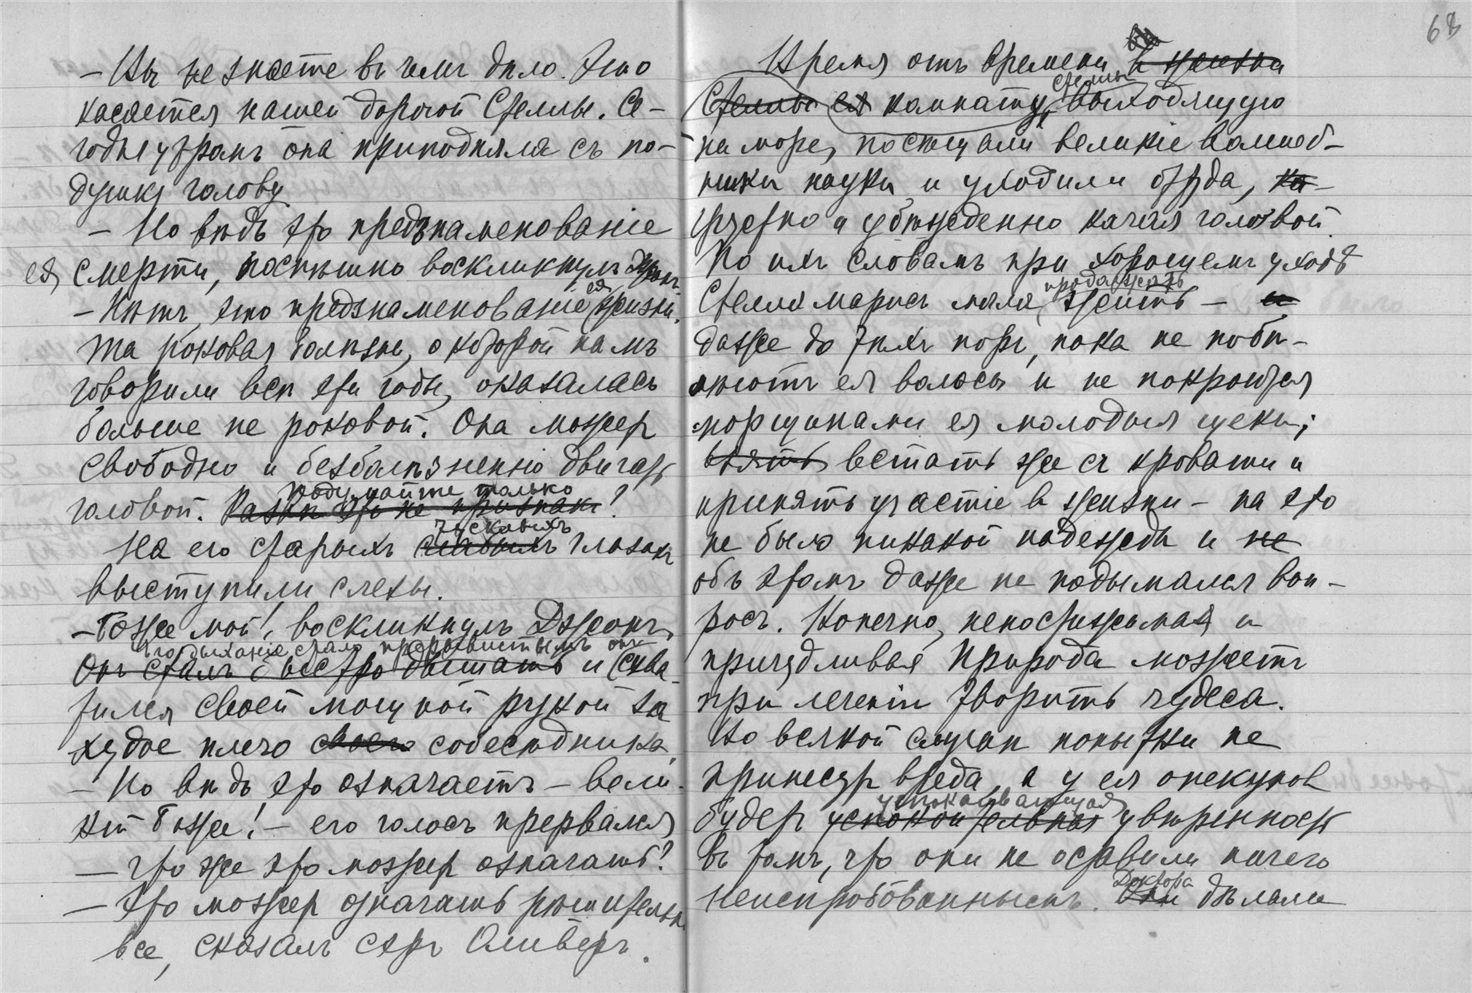 68
— Вы не знаете въ чемъ дѣло. Это
касается нашей дорогой Стеллы. Се-
годня утромъ она приподняла съ по-
душки голову
— Но вѣдь это предзнаменованіе
ея смерти, поспѣшно воскликнулъ Джонъ.
— Нѣтъ, это предзнаменованіе ея жизни.
Та роковая болѣзнь, о которой намъ
говорили всѣ эти годы, оказалась
больше не роковой. Она можетъ
свободно и безболѣзненно двигать
подумайте только
головой. Развѣ это не признакъ?
На его старыхъ глазахъ
выступили слезы.
— Боже мой!, воскликнулъ Джонъ,
его дыханіе стало прерывистымъ онъ
Онъ сталъ быстро дышать и схва-
тился своей мощной рукой за
худое плечо своего собесѣдника,
— Но вѣдь это означаетъ — вели-
кій Боже! — его голосъ прервался
— что же это можетъ означать?
— Это можетъ означать рѣшительно
все, сказалъ сэръ Оливеръ.
Время отъ времени
Стеллы
Стеллы ея комнату, выходящую
на море, посѣщали великіе волшеб-
ники науки и уходили оттуда,
и убѣжденно качая головой.
По ихъ словамъ при хорошемъ уходѣ
продолжать
Стелла Марисъ могла жить — и
даже до тѣхъ поръ, пока не побѣ-
лѣютъ ея волосы и не покроются
морщинами ея молодыя щеки;
взять встать же съ кровати и
принять участіе въ жизни — на это
не было никакой надежды и не
объ этомъ даже не подымался воп-
росъ. Конечно, непостижимая и
причудливая природа можетъ
при леченіи творить чудеса.
Во всякой случаѣ попытки не
принесутъ вреда а у ея опекуновъ
успокаивающая
будетъ успокоительная увѣренность
въ томъ, что они не оставили ничего
Доктора
неиспробованнымъ. Они дѣлали